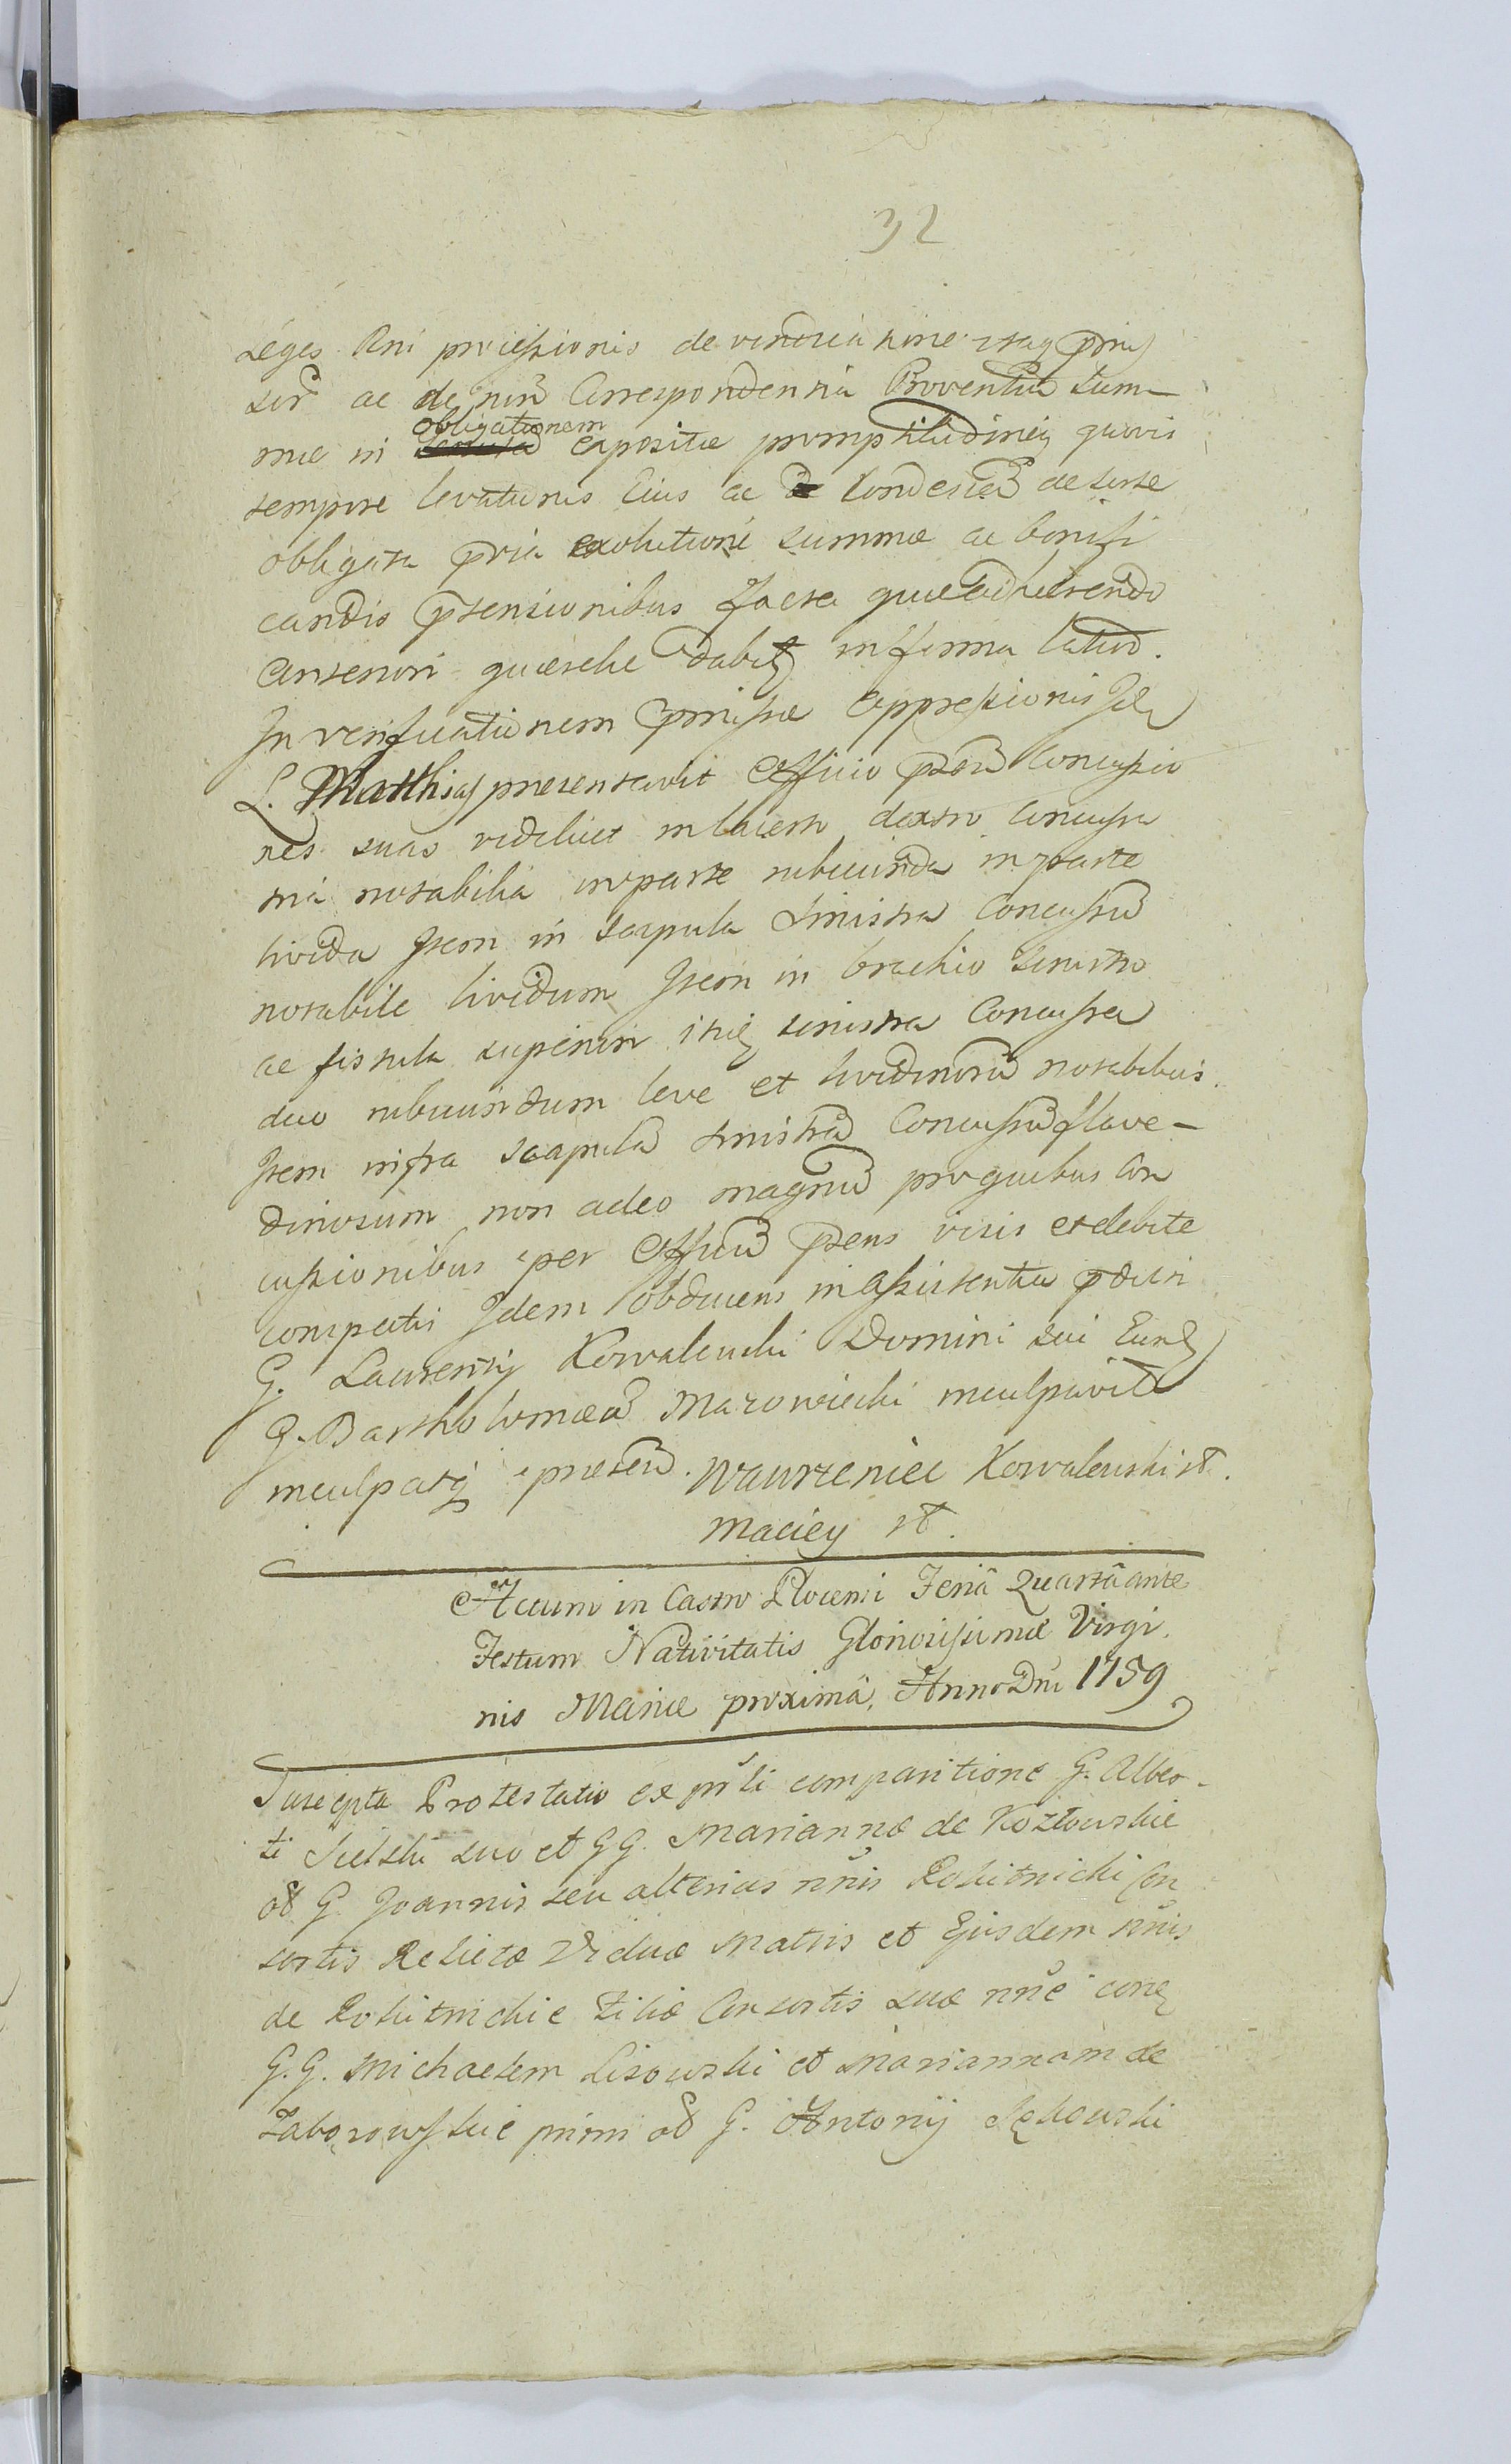 32
Leges Rni processionis de vendria hine itaq pmis
sit ac de non Correspondentia Proventuu sum-
mae in obligationem expositae promptitudineq quovis
tempore levaturus Eius ac condescen de sorte
obligata pria exolutione summae ac bonifi
candis ptensionibus facta quae adhaerendo
anteriori quaerelae dabit in forma latiori.
In verificationem pmissae oppressionis Idem
L. Matthias praesentavit Officio pnti Concussio
nes suas videlicet in lacerto dextro concussa
tria notabilia in parte rubicunda in parte
livida Item in scapula sinistra Concussum
notabile lividum Item in brachio sinistro
ac fistula superiori itid sinistra Concussa
duo rubicundum leve et lividinosum notabilius
Item infra scapulam sinistram Concussum flave-
dinosum non adeo magnum pro quibus Con
cussionibus per Officium psens visis et debite
conspectis Idem Obducens in assistentia pdicti
G. Laurentij Kowalewski Domini sui Eund
G. Bartholomaeum Mazowiecki inculpavit
inculpatq praesen. Wawrzeniec Kowalewski
Maciey
Actum in Castro Plocensi Feriâ Quartâ ante
Festum Nativitatis Gloriosissimae Virgi
nis Mariae proximâ, Anno Dni 1759
Suscepta Protestatio ex prsli comparitione G. Alber-
ti Sielski suo et GG. Mariannae de Kozłowskie
G. Joannis seu alterius nnis Rokitnicki Con
sortis Relictae Viduae Matris et Ejusdem nnis
de Rokitnickie Filiae Consortis suae nne con
G.G. Michaelem Lisowski et Mariannam de
Zaborowskie primi G. Antonij Sękowski